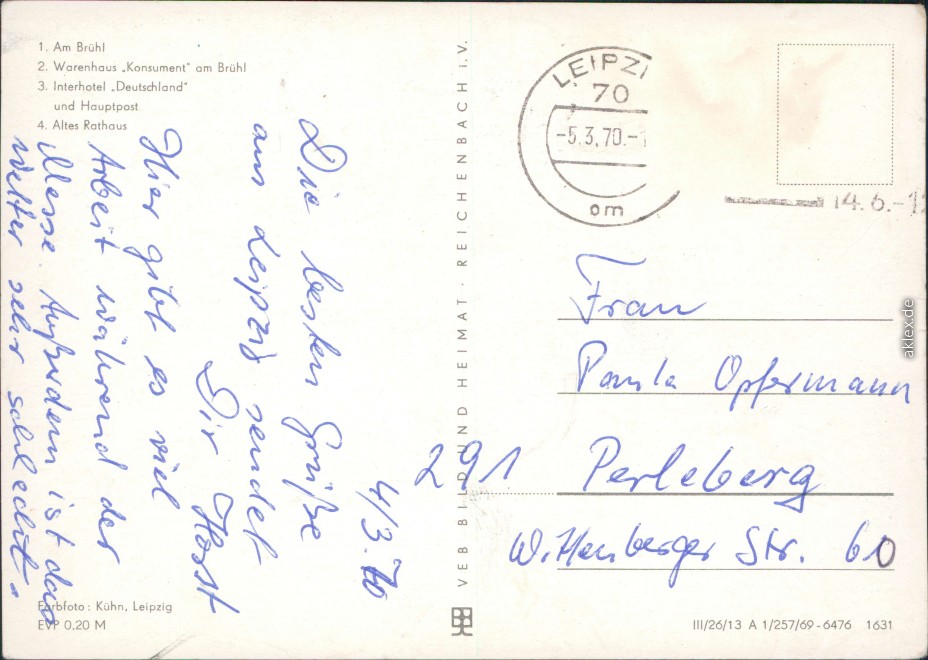 1. Am Brühl
2. Warenhaus „Konsument" am Brühl
3. Interhotel „Deutschland"
und Hauptpost
4. Altes Rathaus
4/3.70
Die besten Grüße
aus Leipzig sendet
Dir Horst
Hier gibt es viel
Arbeit während der
Messe Außerdem ist das
Wetter sehr schlecht.
Farbfoto: Kühn, Leipzig
EVP 0,20 M
VEB BILD UND HEIMAT · REICHENBACH I.V.
LEIPZI
70
-5.3.70.-1
om
14.6.-1
Frau
Paula Opfermann
291 Perleberg
Wittenberger Str. 60
III/26/13 A 1/257/69-6476 1631
aklex.de